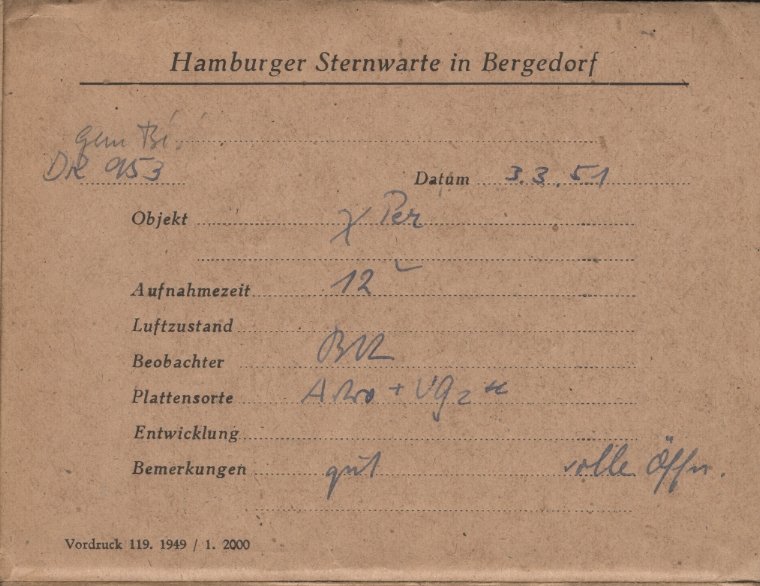 Hamburger Sternwarte in Bergedorf
gem Bi
DR 953 Datum 3.3.51
Objekt χ Per
Aufnahmezeit 12
Luftzustand
Beobachter
Plattensorte Astro + VG2
Entwicklung
Bemerkungen gut volle Öffn.
Vordruck 119. 1949 / 1. 2000